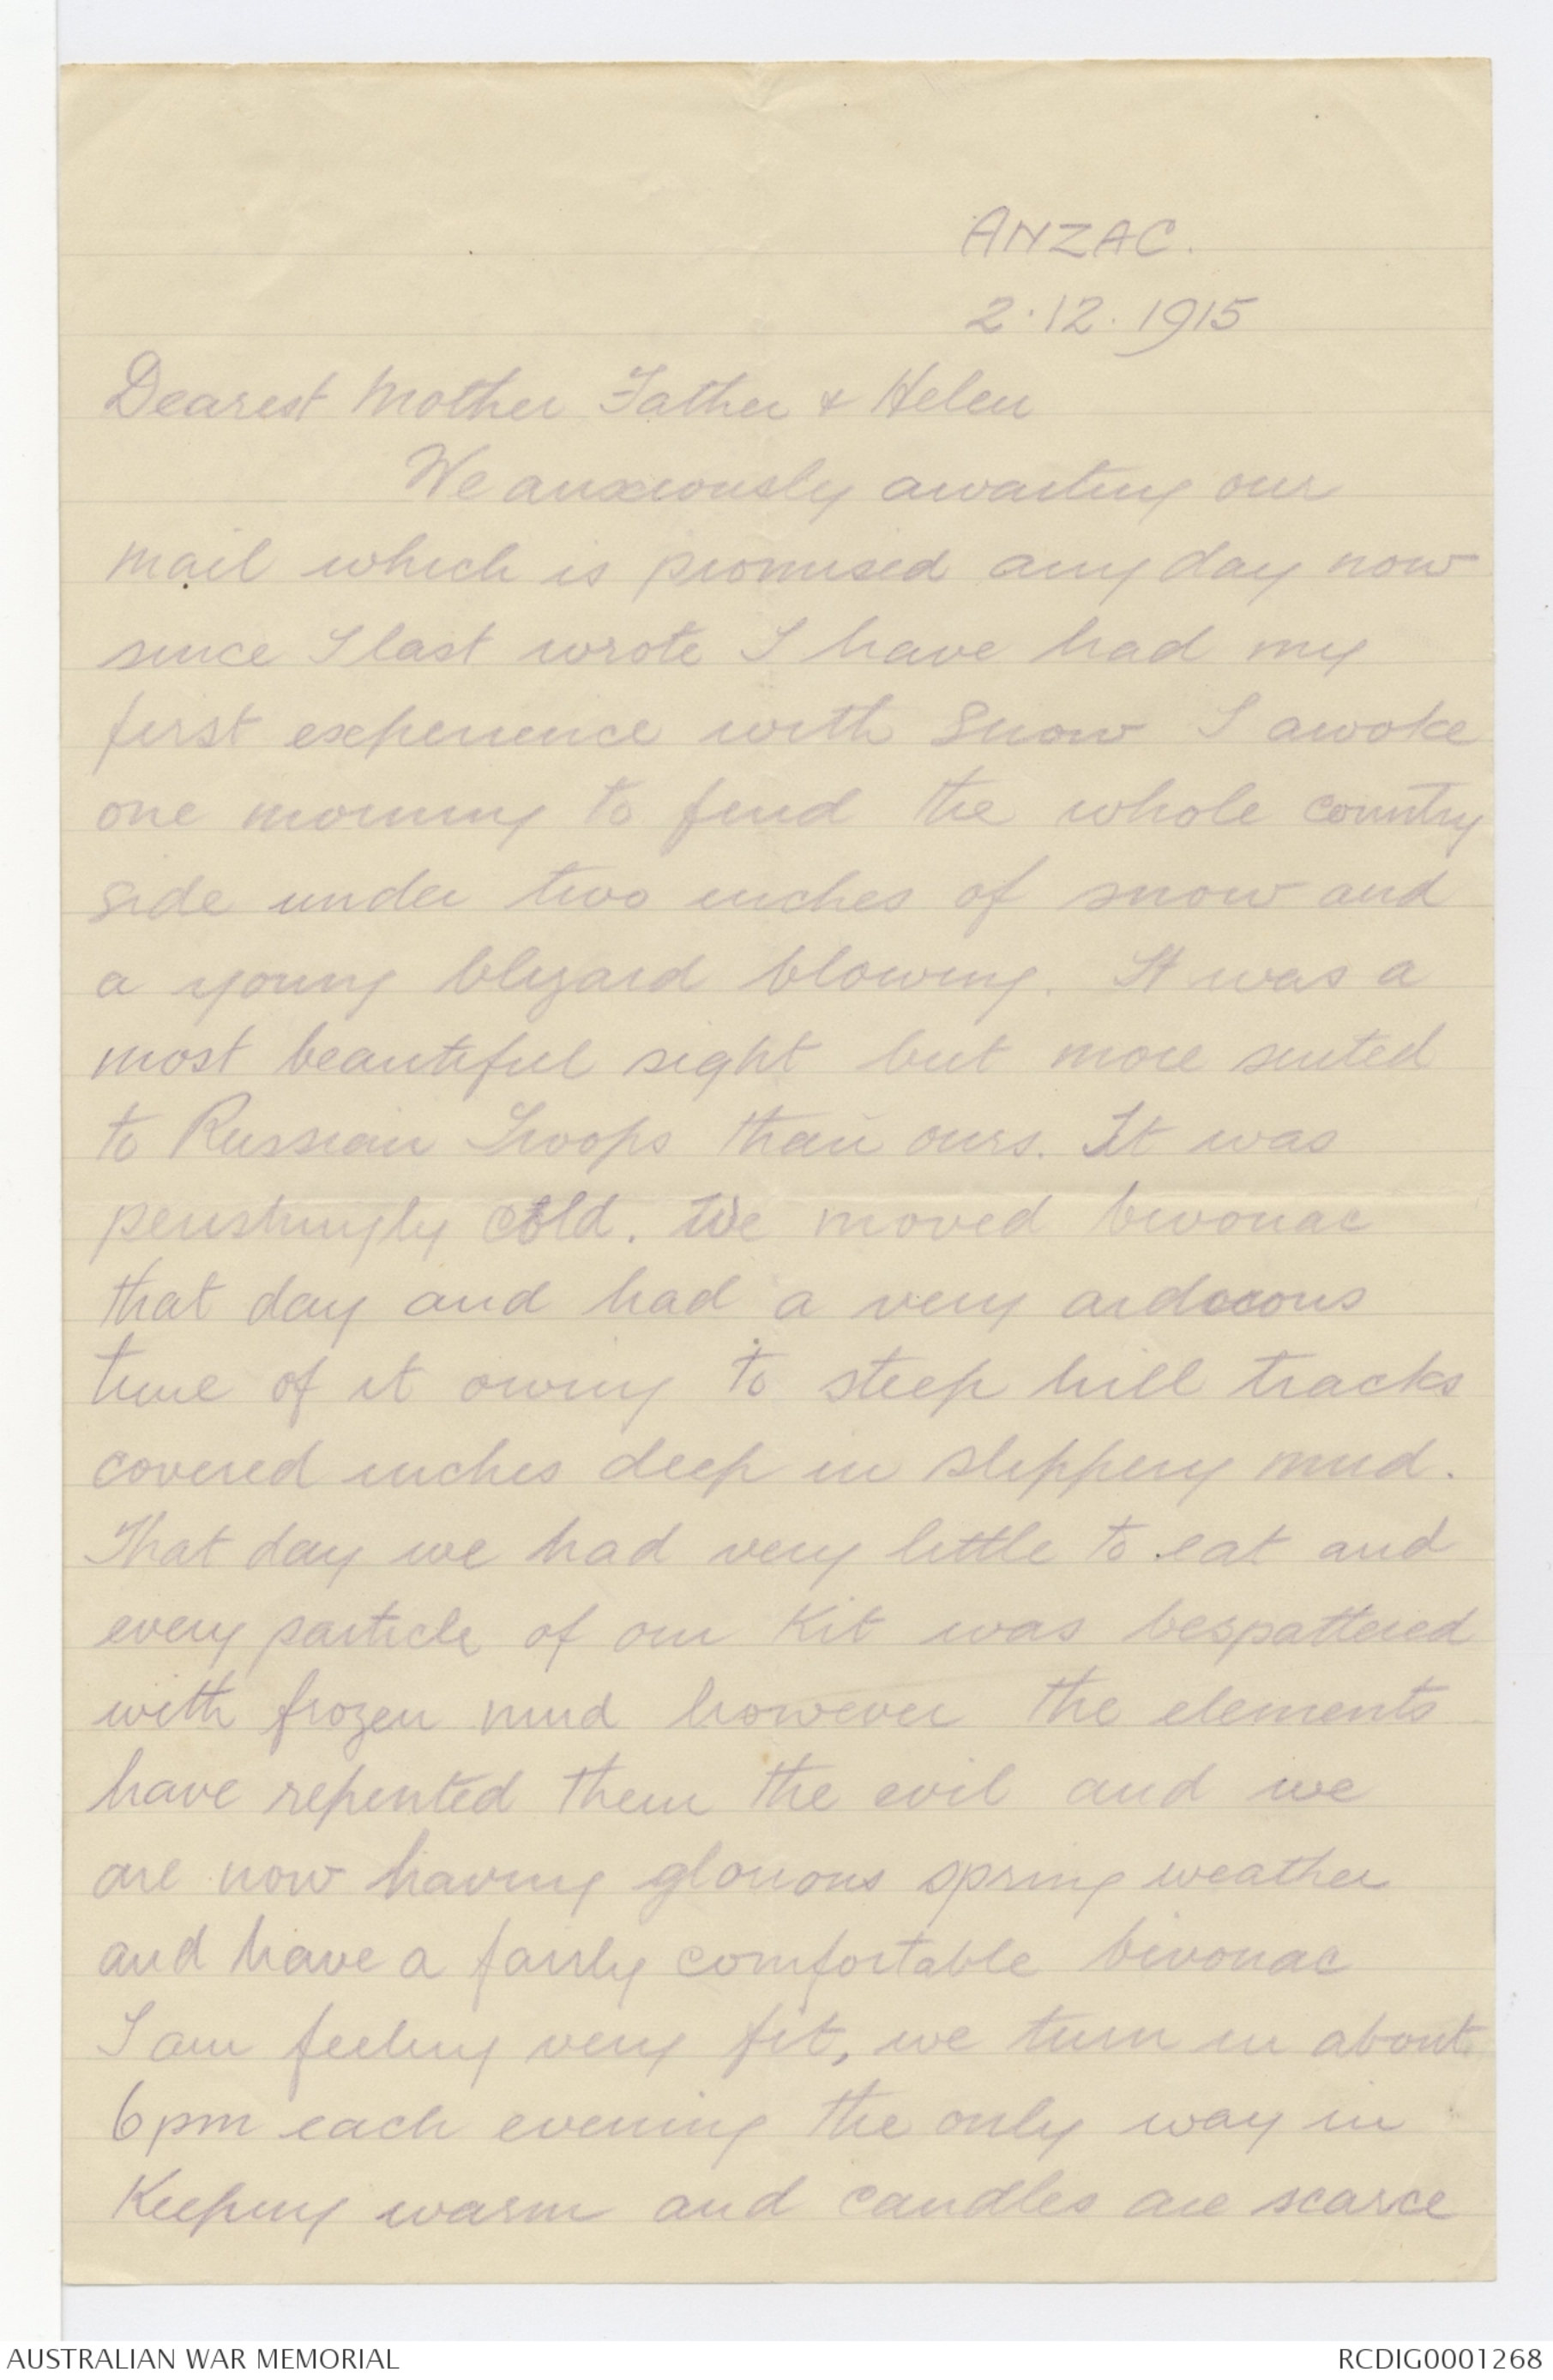 ANZAC.
2.12.1915
Dearest Mother Father & Helen
We anxiously awaiting our
mail which is promised any day now
since I last wrote I have had my
first experience with Snow I awoke
one morning to find the whole country
side under two inches of snow and
a young blizard blowing. It was a
most beautiful sight but more suited
to Russian Troops than ours. It was
perishingly cold. We moved bivouac
that day and had a very arduous
time of it owing to steep hill tracks
covered inches deep in slippery mud.
That day we had very little to eat and
every particle of our Kit was bespattered
with frozen mud however the elements
have repented them the evil and we
are now having glorious spring weather
and have a fairly comfortable bivouac
I am feeling very fit, we turn in about
6pm each evening the only way in
Keeping warm and candles are scarce
AUSTRALIAN WAR MEMORIAL
RCDIG0001268